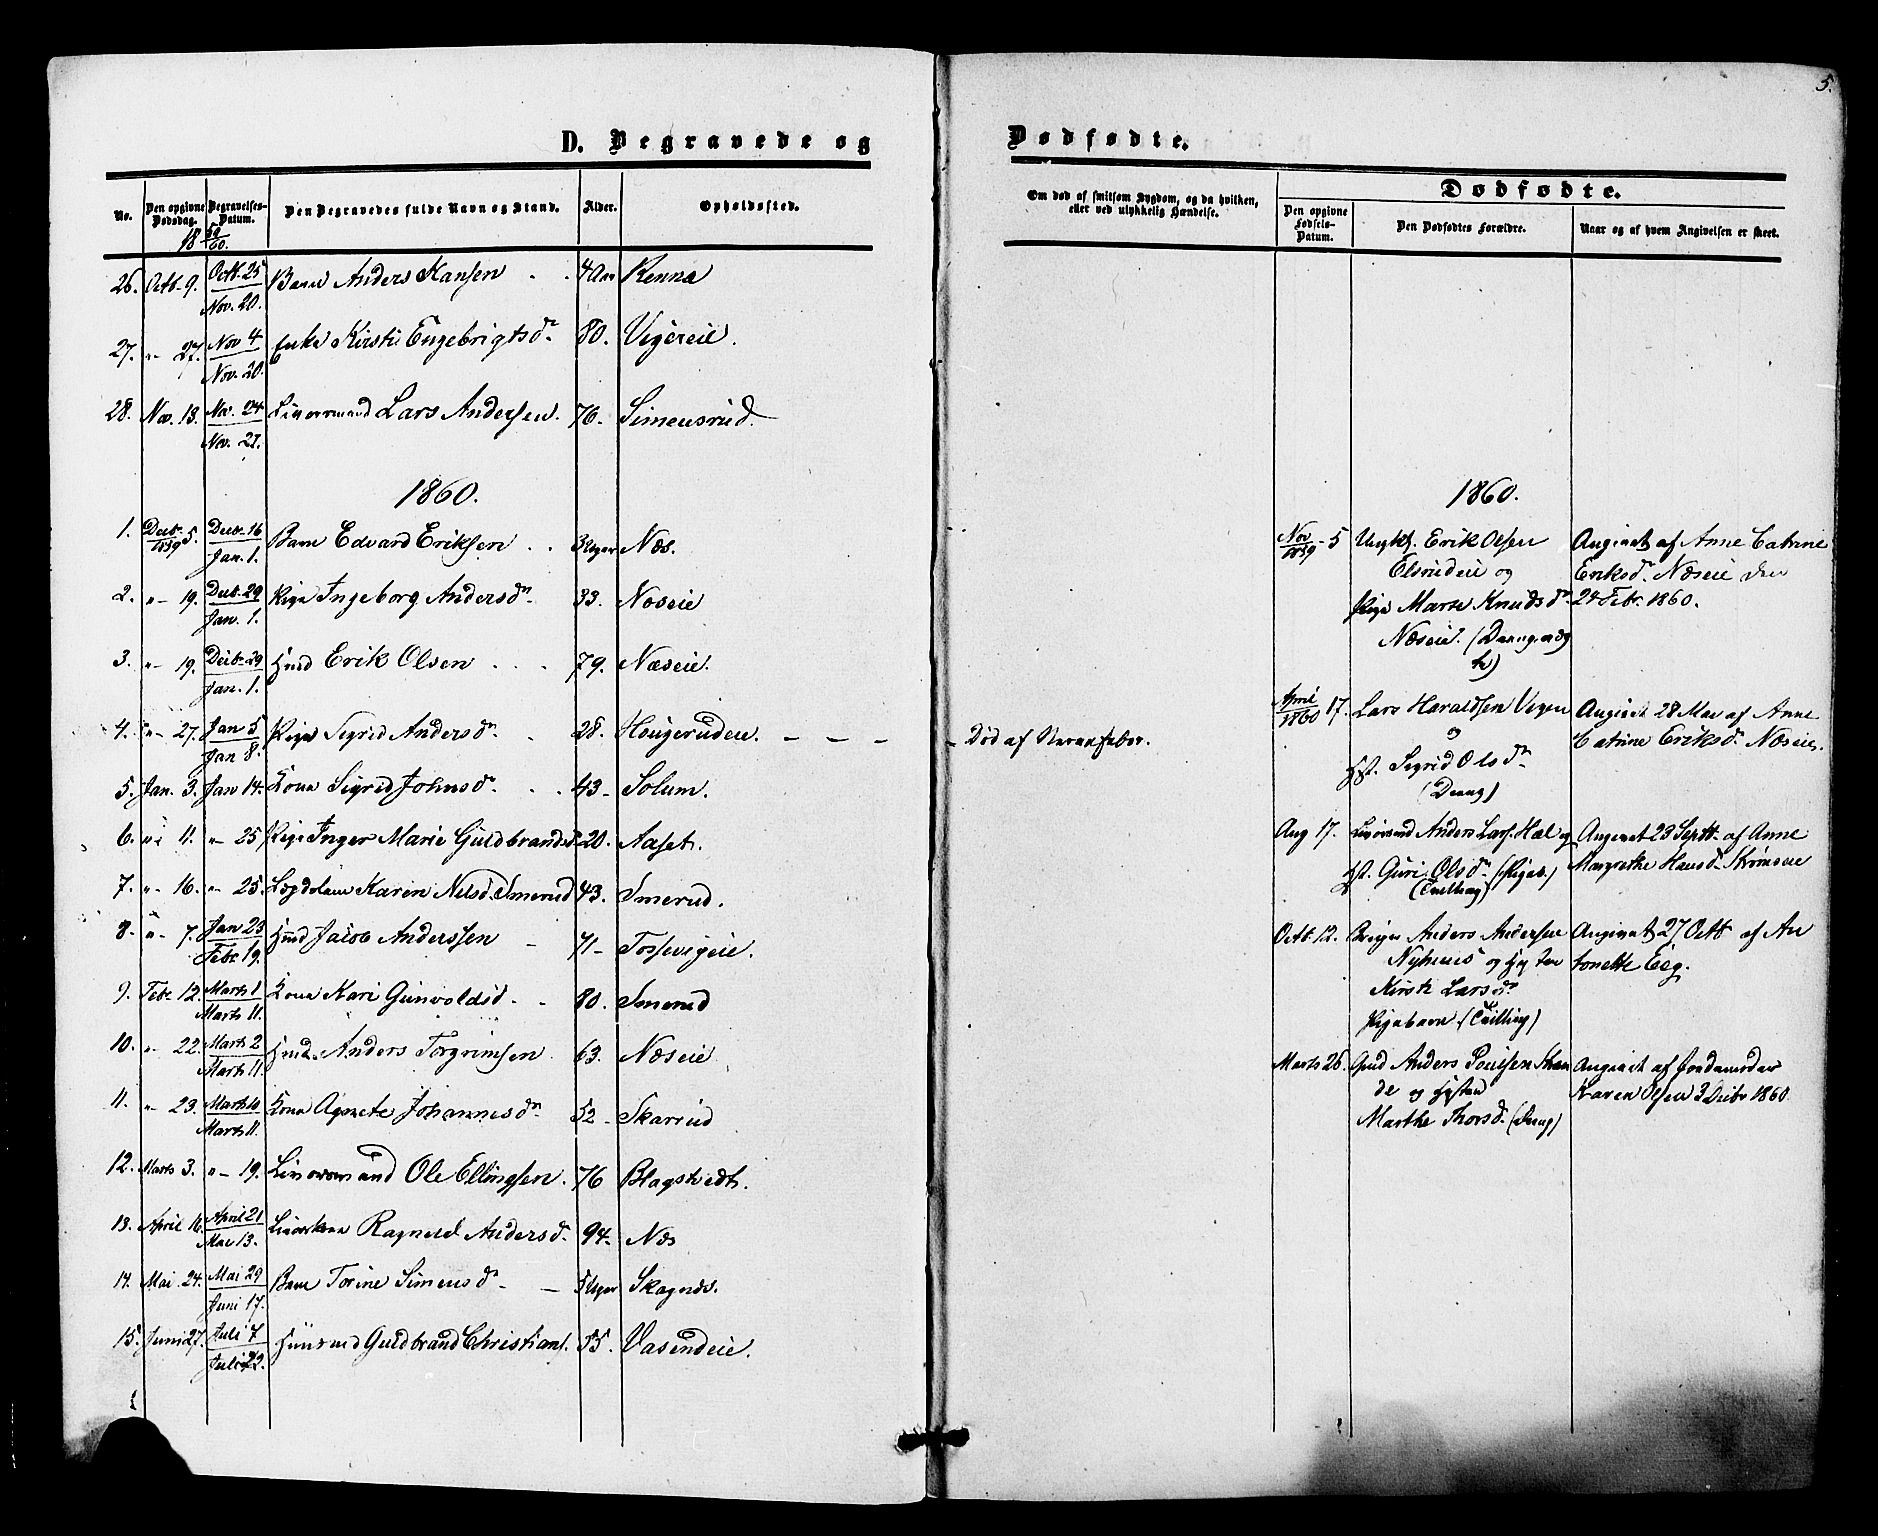 5.
D. Begravede og Dødfødte.
No.
Den opgivne Dødsdag.
Begravelses-Datum.
Den Begravedes fulde Navn og Stand.
Alder.
Opholdssted.
Om død af smitsom Sygdom, og da hvilken, eller ved ulykkelig Hændelse.
Dødfødte.
Den opgivne Fødsels-Datum.
Den Dødfødtes Forældre.
Naar og af hvem Angivelsen er skeet.
18 59/60.
26. Octb. 9. Octb. 25 / Nov. 20. Barn Anders Hansen 4 Aar Renna
27. " 27. Nov 4 / Nov. 20. Enke Kirsti Engebrigtsd. 80. Vigereie.
28. Nov. 13. Nov. 24 / Nov. 27. Livørmand Lars Andersen. 76. Simensrud.
1860.
1. Decb. 1859 5. Decb. 16 / Jan. 1. Barn Edvard Eriksen 3 Uger Næs.
2. " 19. Decb. 29 / Jan. 1. Pige Ingeborg Andersd. 33. Næseie
3. " 19. Decb. 29 / Jan. 1. Hmd Erik Olsen 79. Næseie.
4. " 27. Jan 5 / Jan 8. Pige Sigrid Andersd. 28. Hougerudeie. Død af Nervefeber.
5. Jan. 3. Jan 14. Kone Sigrid Johnsd. 43 Solum.
6. " 11. " 25 Pige Inger Marie Guldbrandsd. 20. Aaset.
7. " 16. " 25. Karen Nilsd. Smerud 43. Smerud.
8. " 7. Jan 23 / Febr 19. Hmd Jacob Anderssen 71 Tossevigeie.
9. Febr 12. Marts 1 / Marts 11. Kone Kari Gunvoldsd. 80. Smerud
10. " 22. Marts 2 / Marts 11. Hmd. Anders Torgrimsen 63. Næseie
11. " 23. Marts 10 / Marts 11. Kone Agnete Johannesd. 52 Skarrud
12. Marts 3. " 19. Livørmand Ole Ellingsen. 76 Blagstvedt.
13. April 16. April 21 / Mai 13. Livørkone Ragnild Andersd. 94. Næs
14. Mai 24. Mai 29 / Juni 17. Barn Torine Simensd. 5 Uger Skagnæs.
15. Juni 27. Juli 7 / Juli 22. Huusmd Guldbrand Christians. 55. Vasendeie.
1860.
Nov 1859 5 Ungk. Erik Olsen Angivet af Anne Catrine
Elsrudeie og Eriksd. Næseie den
Pige Marte Knudsd. 24 Febr. 1860.
Næseie.
April 1860 17. Lars Haraldsen Vigen Angivet 28 Mai af Anne
og Catrine Eriksd. Næseie.
Hst. Sigrid Olsd.
(Dreng)
Aug 17. Anders Lars. Hæl og Angivet 23 Septt. af Anne
Hst. Guri Olsd. (Pigeb.) Margrethe Hansd.
(Tvilling)
Octb. 12. Anders Andersen Angivet 27 Octb af An
Nyhuus og Hustru tonette Eeg.
Kirsti Larsd.
Pigebarn (Tvilling)
Marts 26. Gmd Anders Poulsen Stran Angivet af Jordemoder
de og Hustru Karen Olsen 3 Decbr 1860.
Marthe Thorsd. (Dreng)